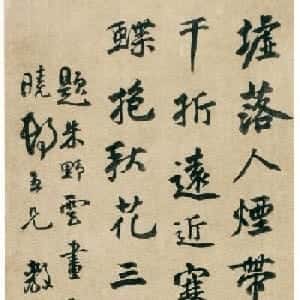 墟落人煙帶
千折遠近寒
蝶抱秋花三
題朱野雲畫
曉五兄教